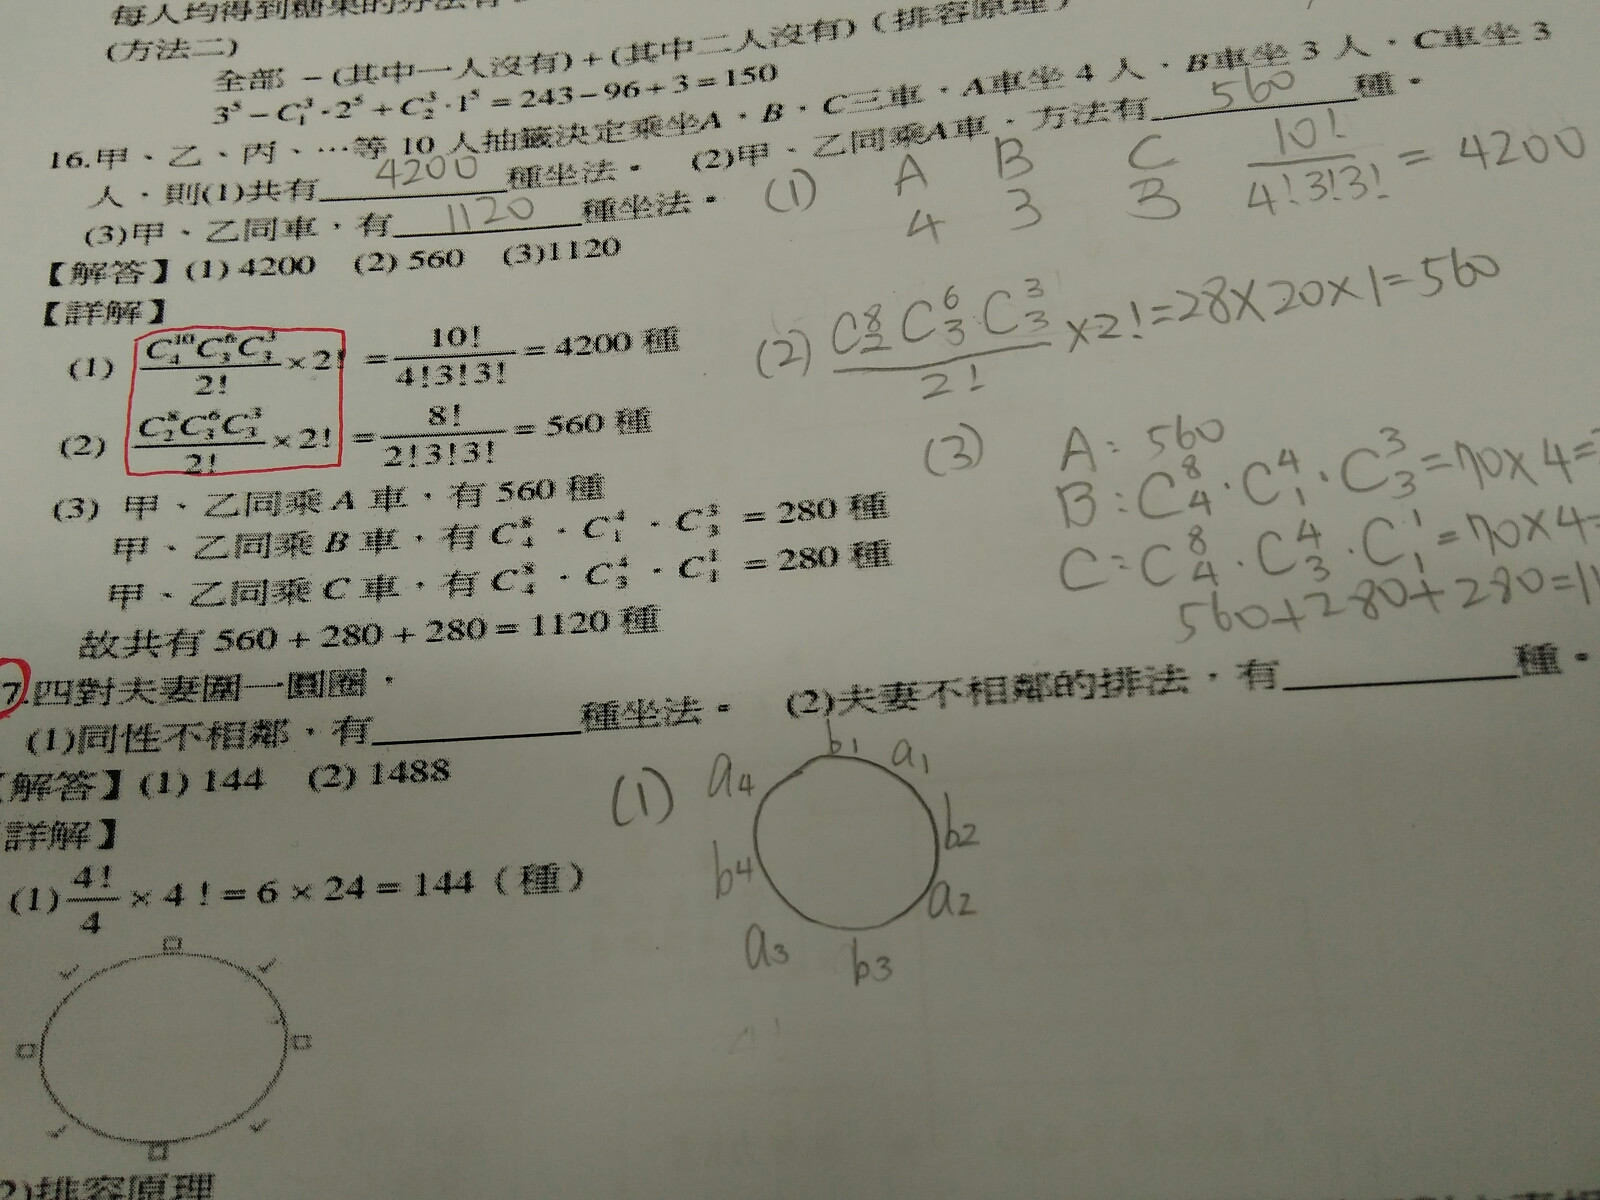 每人均得到糖果的分法有
(方法二)
全部 －(其中一人沒有)＋(其中二人沒有)（排容原理）
3⁵－C³₁·2⁵＋C³₂·1⁵＝243－96＋3＝150
16.甲、乙、丙、…等 10 人抽籤決定乘坐A、B、C三車，A車坐 4 人，B車坐 3 人，C車坐 3
人，則(1)共有 4200 種坐法。 (2)甲、乙同乘A車，方法有 560 種。
(3)甲、乙同車，有 1120 種坐法。
【解答】(1) 4200 (2) 560 (3)1120
【詳解】
(1) C¹⁰₄C⁶₃C³₃/2! ×2! ＝ 10!/4!3!3! ＝ 4200 種
(2) C⁸₂C⁶₃C³₃/2! ×2! ＝ 8!/2!3!3! ＝ 560 種
(3) 甲、乙同乘 A 車，有 560 種
甲、乙同乘 B 車，有 C⁸₄．C⁴₁．C³₃ ＝ 280 種
甲、乙同乘 C 車，有 C⁸₄．C⁴₃．C¹₁ ＝ 280 種
故共有 560 + 280 + 280 = 1120 種
(1) A B C 10!/4!3!3! = 4200
4 3 3
(2) C⁸₂C⁶₃C³₃/2! ×2!=28×20×1=560
(3) A: 560
B: C⁸₄·C⁴₁·C³₃=70×4=
C: C⁸₄·C⁴₃·C¹₁=70×4=
560+280+280=11
7.四對夫妻圍一圓圈，
(1)同性不相鄰，有 種坐法。 (2)夫妻不相鄰的排法，有 種。
【解答】(1) 144 (2) 1488
詳解】
(1) 4!/4 × 4！＝ 6 × 24 ＝ 144（種）
(1)
b1
a1
b2
a2
b3
a3
b4
a4
2)排容原理